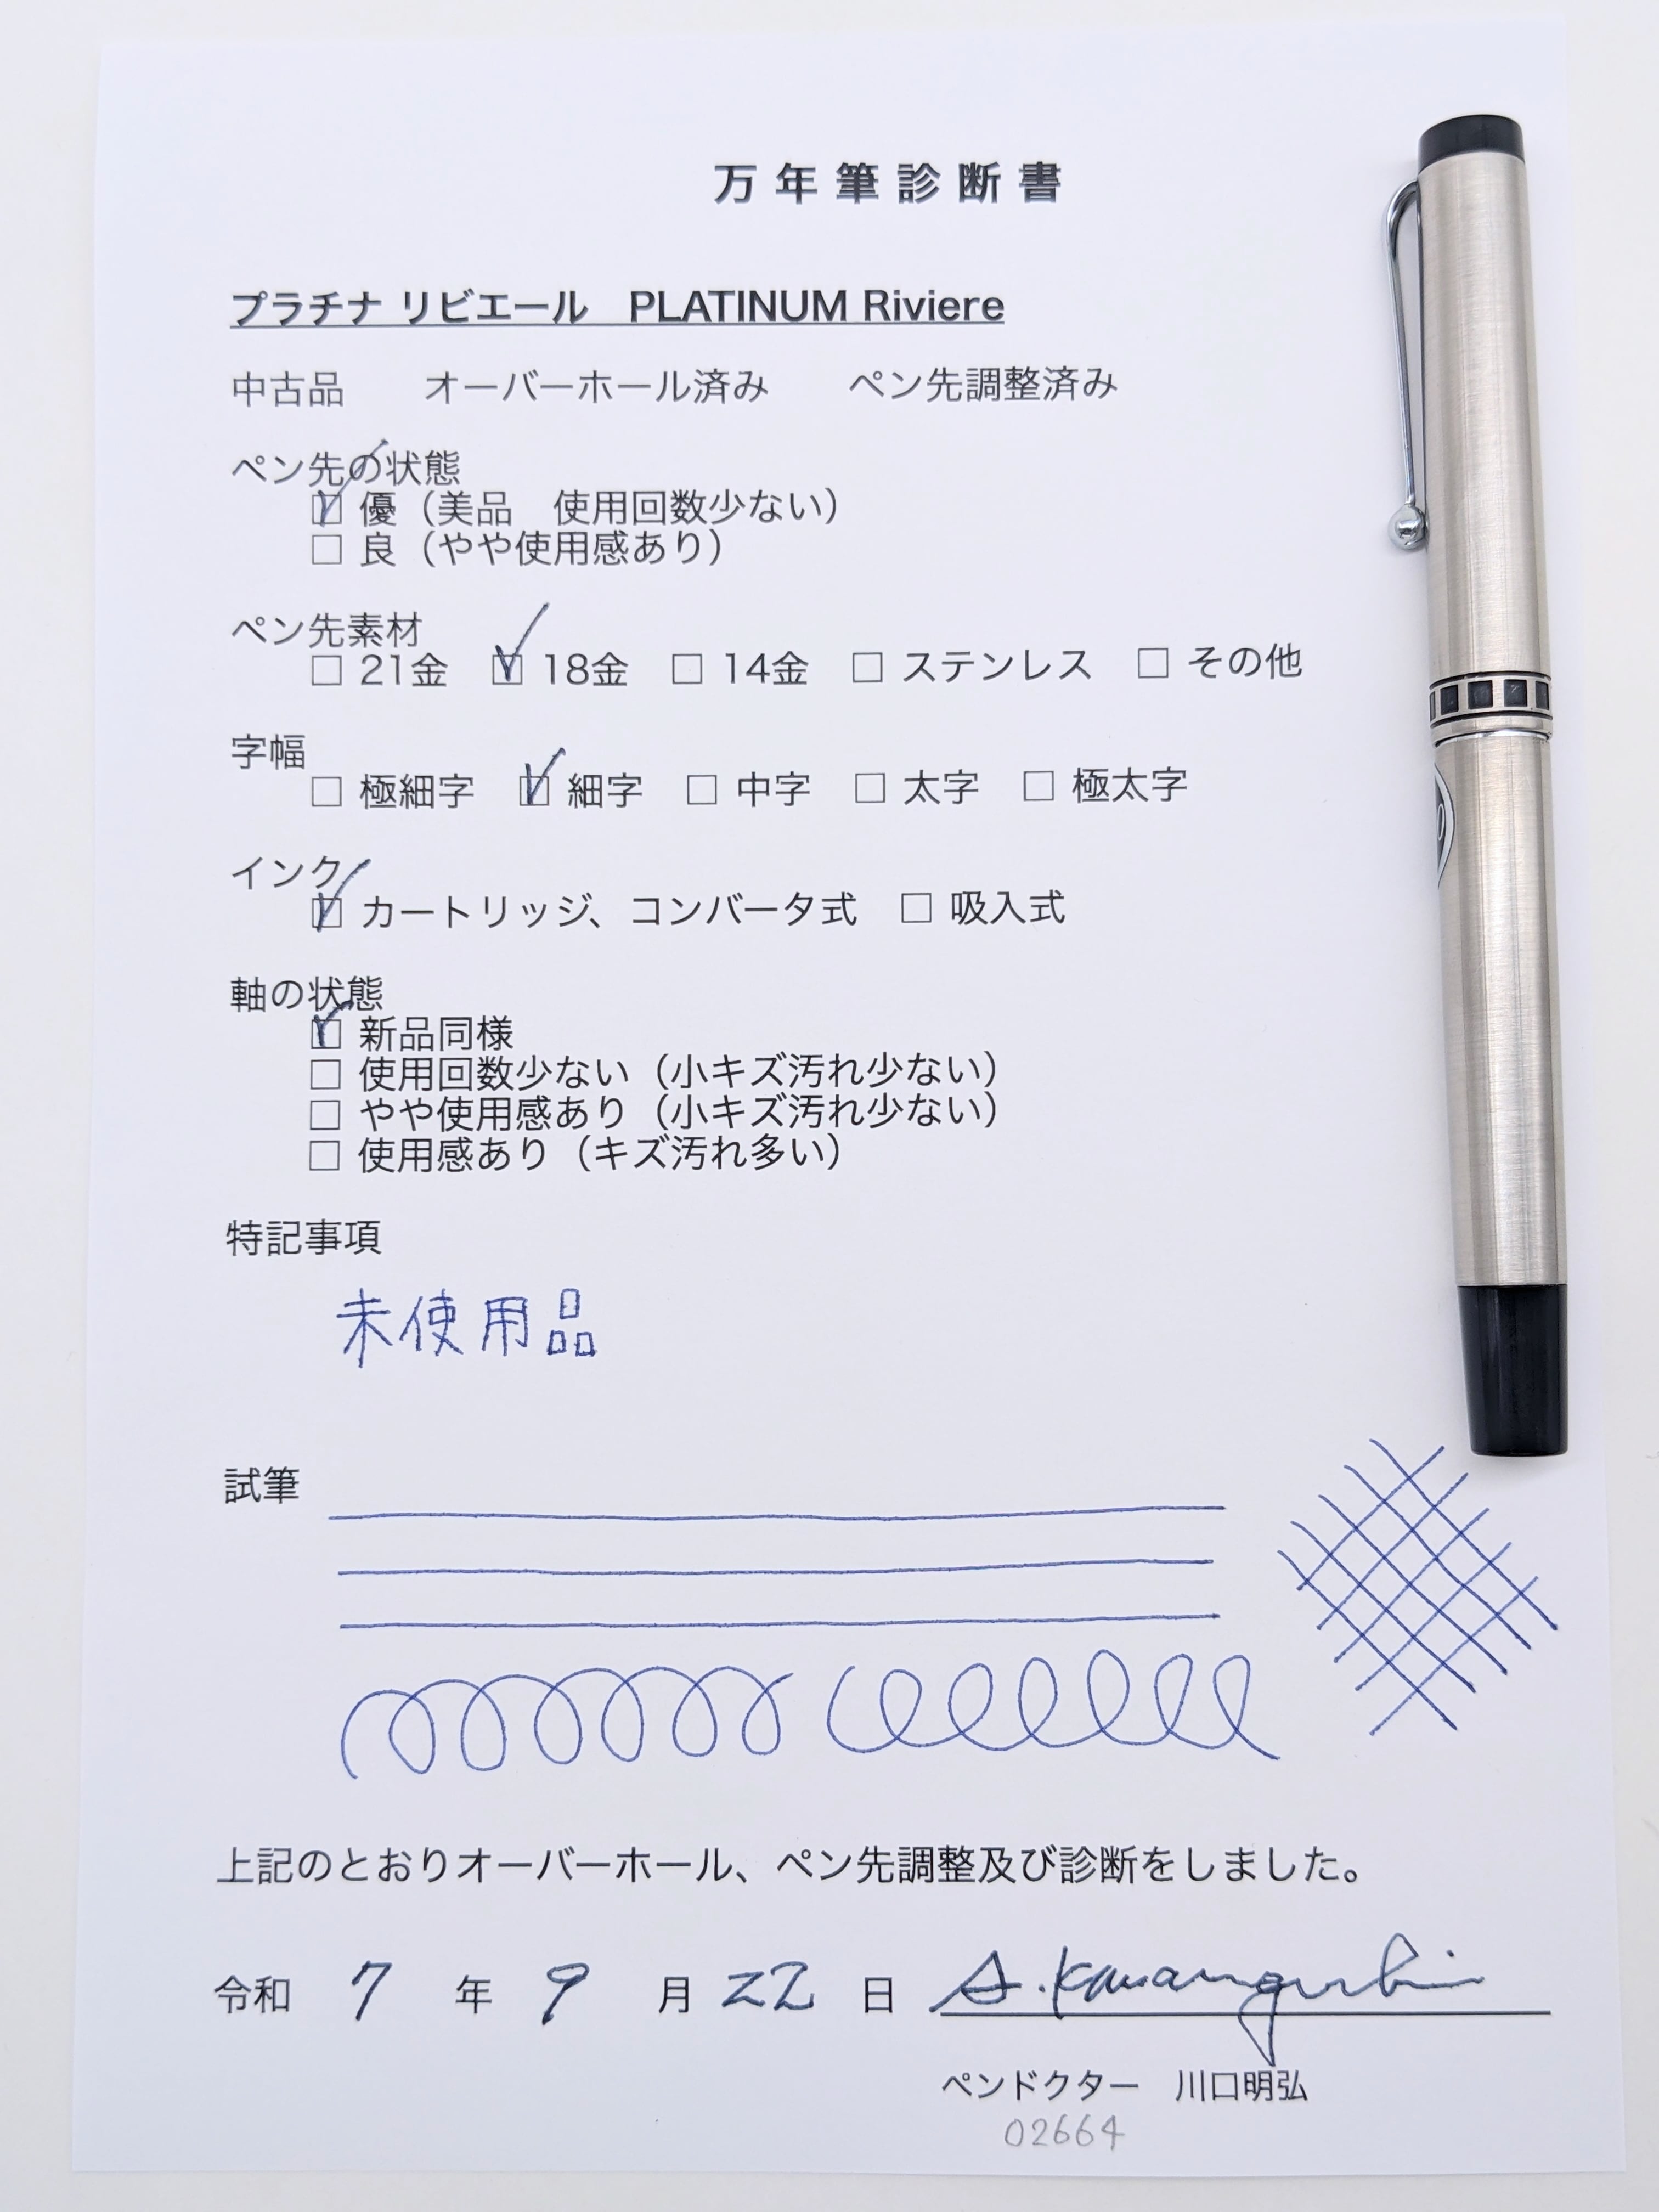 万年筆診断書
プラチナ リビエール　PLATINUM Riviere
中古品　　オーバーホール済み　　ペン先調整済み
ペン先の状態
☑ 優（美品　使用回数少ない）
□ 良（やや使用感あり）
ペン先素材
□ 21金　☑ 18金　□ 14金　□ ステンレス　□ その他
字幅
□ 極細字　☑ 細字　□ 中字　□ 太字　□ 極太字
インク
☑ カートリッジ、コンバータ式　□ 吸入式
軸の状態
☑ 新品同様
□ 使用回数少ない（小キズ汚れ少ない）
□ やや使用感あり（小キズ汚れ少ない）
□ 使用感あり（キズ汚れ多い）
特記事項
未使用品
試筆
上記のとおりオーバーホール、ペン先調整及び診断をしました。
令和 7 年 9 月 22 日 A. Kawaguchi
ペンドクター　川口明弘
02664